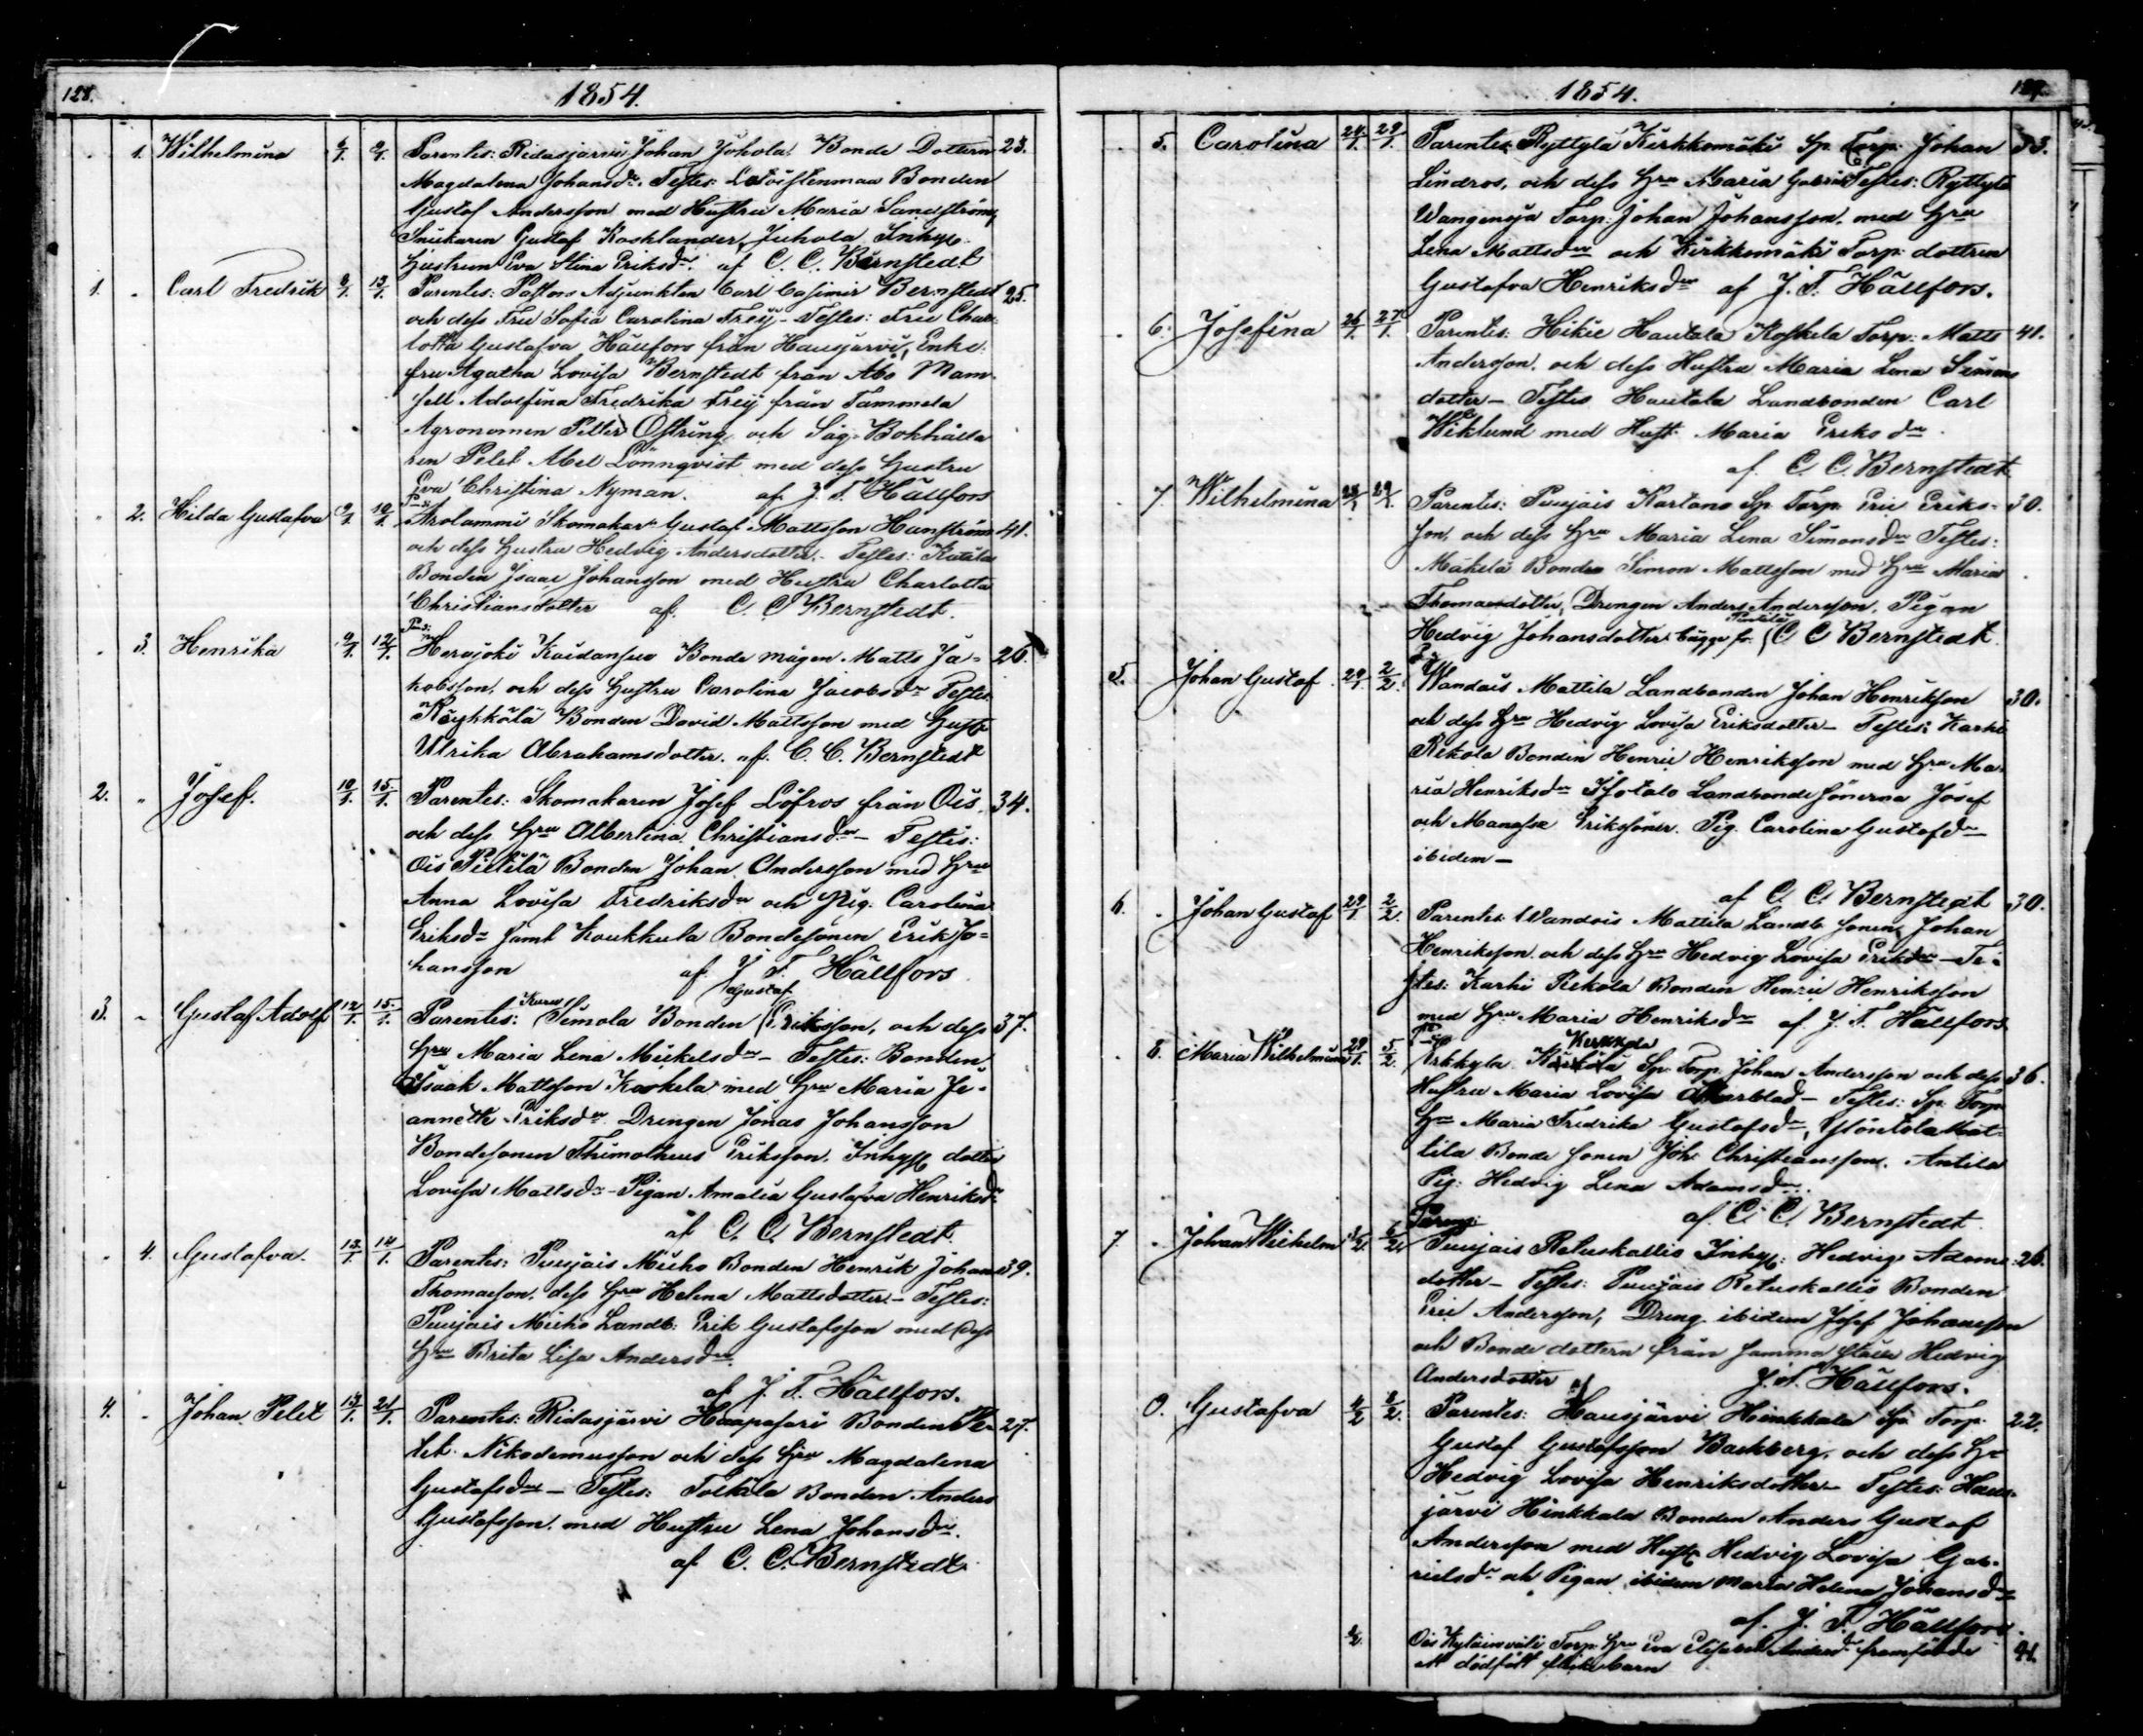 128.
1854.
1. Wilhelmina 6/1. 9/1. Parentes: Ridasjärvi Johan Johola Bonde Dottern 23.
Magdalena Johansdr. Testes: Latoistenmaa Bonden
Gustaf Andersson med Hustru Maria Sandström,
Snickaren Gustaf Kosklander, Juhola Inhys.
Hustrun Eva Stina Eriksdr. af C. C. Bernstedt
1. " Carl Fredrik 8/1. 13/1. Parentes: Pastors Adjunkten Carl Casimir Bernstedt 25.
och dess Fru Sofia Carolina Freÿ - Testes: Fru Char
lotta Gustafva Hällfors från Hausjärvi, Enke
fru Agatha Lovisa Bernstedt från Åbo Mam
sell Adolfina Fredrika Freÿ från Tammela
Agronomen Petter Östring och Såg. Bokhålla
ren Pelet Abel Lönnqvist med dess Hustru
Eva Christina Nyman. af J. T. Hällfors
" 2. Hilda Gustafva 9/1. 10/1. Arolammi Skomakar Gustaf Mattsson Hanström 41.
och dess Hustru Hedvig Andersdotter - Testes: Katala
Bonden Isaac Johansson med Hustru Charlotta
Christiansdotter af. C. C. Bernstedt.
" 3. Henrika 9/1. 12/1. Herajoki Kaidansuo Bonde mågen Matts Ja- 26.
kobsson, och dess Hustru Carolina Jacobsdr Testes
Röykkälä Bonden David Mattsson med Hustr
Ulrika Abrahamsdotter. af. C. C. Bernstedt
2. " Josef. 10/1. 15/1. Parentes: Skomakaren Josef Löfros från Ois, 34.
och dess Hru Albertina Christiansdr - Testis:
Ois Pietilä Bonden Johan Andersson med Hru
Anna Lovisa Fredriksdr och Pig. Carolina
Eriksdr samt Koukkula Bondesonen Erik Jo-
hansson af. J. T. Hällfors
Kuru Gustaf
3. " Gustaf Adolf 12/1. 15/1. Parentes: Simola Bonden Eriksson, och dess 37.
Hru Maria Lena Mickelsdr - Testes: Bonden
Isaak Mattsson Koskela med Hru Maria Je-
annette Eriksdr Drengen Jonas Johansson
Bondesonen Thimotheus Eriksson. Inhys dotter
Lovisa Mattsdr - Pigan Amalia Gustafva Henriksdr
af C. C. Bernstedt.
" 4. Gustafva. 13/1. 14/1. Parentes: Puujais Miiho Bonden Henrik Johan 39.
Thomasson, dess Hru Helena Mattsdotter - Testes:
Puujais Miiho Landb: Erik Gustafsson med dess
Hru Brita Lisa Andersdr.
af J. T. Hällfors.
4. " Johan Pelet 13/1. 21/1. Parentes: Ridasjärvi Haapasari Bonden Pe- 27.
let Nikodemusson och dess Hru Magdalena
Gustafsdr - Testes: Torkila Bonden Anders
Gustafsson med Hustru Lena Johansdr.
af C. C. Bernstedt
1854.
129.
" 5. Carolina 24/1. 29/1. Parentes Ryttylä Kirkkomäki Sp. Torp: Johan 33.
Lindros, och dess Hru Maria Gabriels Testes: Ryttylä
Wangenoja Torp: Johan Johansson, med Hru
Lena Mattsdr och Kirkkomäki Torp: dottren
Gustafva Henriksdr af J. T. Hällfors.
" 6. Josefina 26/1. 27/1. Parentes: Hikie Hautala Koskela Torp: Matts 41.
Andersson, och dess Hustru Maria Lena Simons
dotter - Testes Hautala Landbonden Carl
Wiklund med Hust. Maria Eriksdr.
af. C. C. Bernstedt
" 7. Wilhelmina 28/1. 29/1. Parentes: Puujais Kartano Sp. Torp. Eric Eriks- 30.
son, och dess Hru Maria Lena Simonsdr Testes:
Mäkelä Bonden Simon Mattsson med Hru Maria
Thomasdotter, Drengen Anders Andersson, Pigan
Hedvig Johansdotter bägge fr. C. C. Bernstedt.
5. Johan Gustaf 29/1. 2/2. Wandais Mattila Landbonden Johan Henriksson 30.
och dess Hru Hedvig Lovisa Eriksdotter - Testes: Karhi
Rekola Bonden Henric Henriksson med Hru Ma
ria Henriksdr Isotalo Landbonde sönerna Josef
och Manasse Erikssöner. Pig. Carolina Gustafdr
ibidem -
af C. C. Bernstedt
6. " Johan Gustaf 29/1. 2/2. Parentes Wandois Mattila Landb. sonen Johan 30.
Henriksson och dess Hru Hedvig Lovisa Eriksdr - Te-
stes: Karhi Rekola Bonden Henric Henriksson
med Hru Maria Henriksdr af. J. T. Hällfors
" 8. Maria Wilhelmina 29/1. 5/2. Sp. Torp. Johan Andersson och dess 36.
Hustru Maria Lovisa Åkerblad - Testes: Sp. Torp
Hru Maria Fredrika Gustafsdr, Mat
tila Bonde sonen Joh. Christiansson. Antila
Pig: Hedvig Lena Adamsdr.
af. C. C. Bernstedt
7. " Johan Wilhelm 6/2. Puujais Retuskallio Inhys: Hedvig Adams- 26.
dotter - Testes: Puujais Retuskallio Bonden
Eric Andersson, Dreng ibidem Josef Johansson
och Bonde dottern från samma ställe Hedvig
Andersdotter af J. T. Hällfors.
Gustafva 4/2 8/2. Parentes: Hausjärvi Hinkkala Sp. Torp. 22.
Gustaf Gustafsson Backberg, och dess Hr
Hedvig Lovisa Henriksdotter - Testes: Haus-
järvi Hinkkala Bonden Anders Gustaf
Andersson med Hustr Hedvig Lovisa Gab-
rielsdr och Pigan ibidem Maria Helena Johansdr
af. J. T. Hällfors.
Ois Torp. Hru Eva Elisabet Andersdr framfödde 41.
ett dödfödt flickebarn